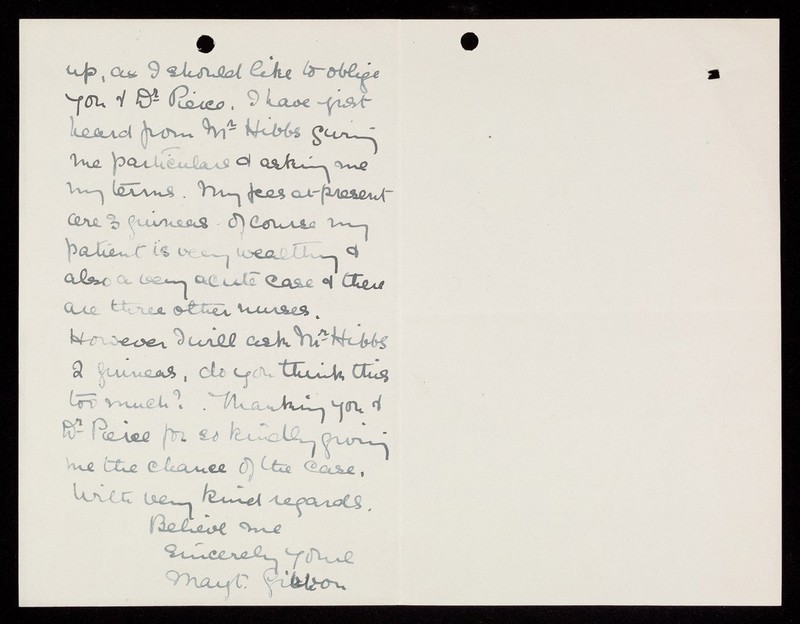 up, as I should like to oblige
you & Dr Pierce. I have just
heard from Mr Hibbs giving
me particulars & asking me
my terms. My fees at present
are 3 guineas. Of course my
patient is very wealthy &
also a very acute case & there
are three other nurses.
However I will ask Mr Hibbs
2 guineas, do you think this
too much?. Thanking you &
Dr Pierce for so kindly giving
me the chance of the case.
With very kind regards.
Believe me
Sincerely yours